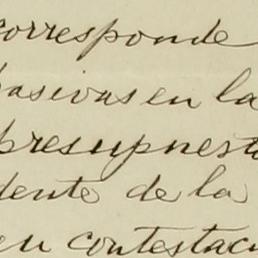 corresponde
pasivas en la
presupuesto
dente de la
en contestac